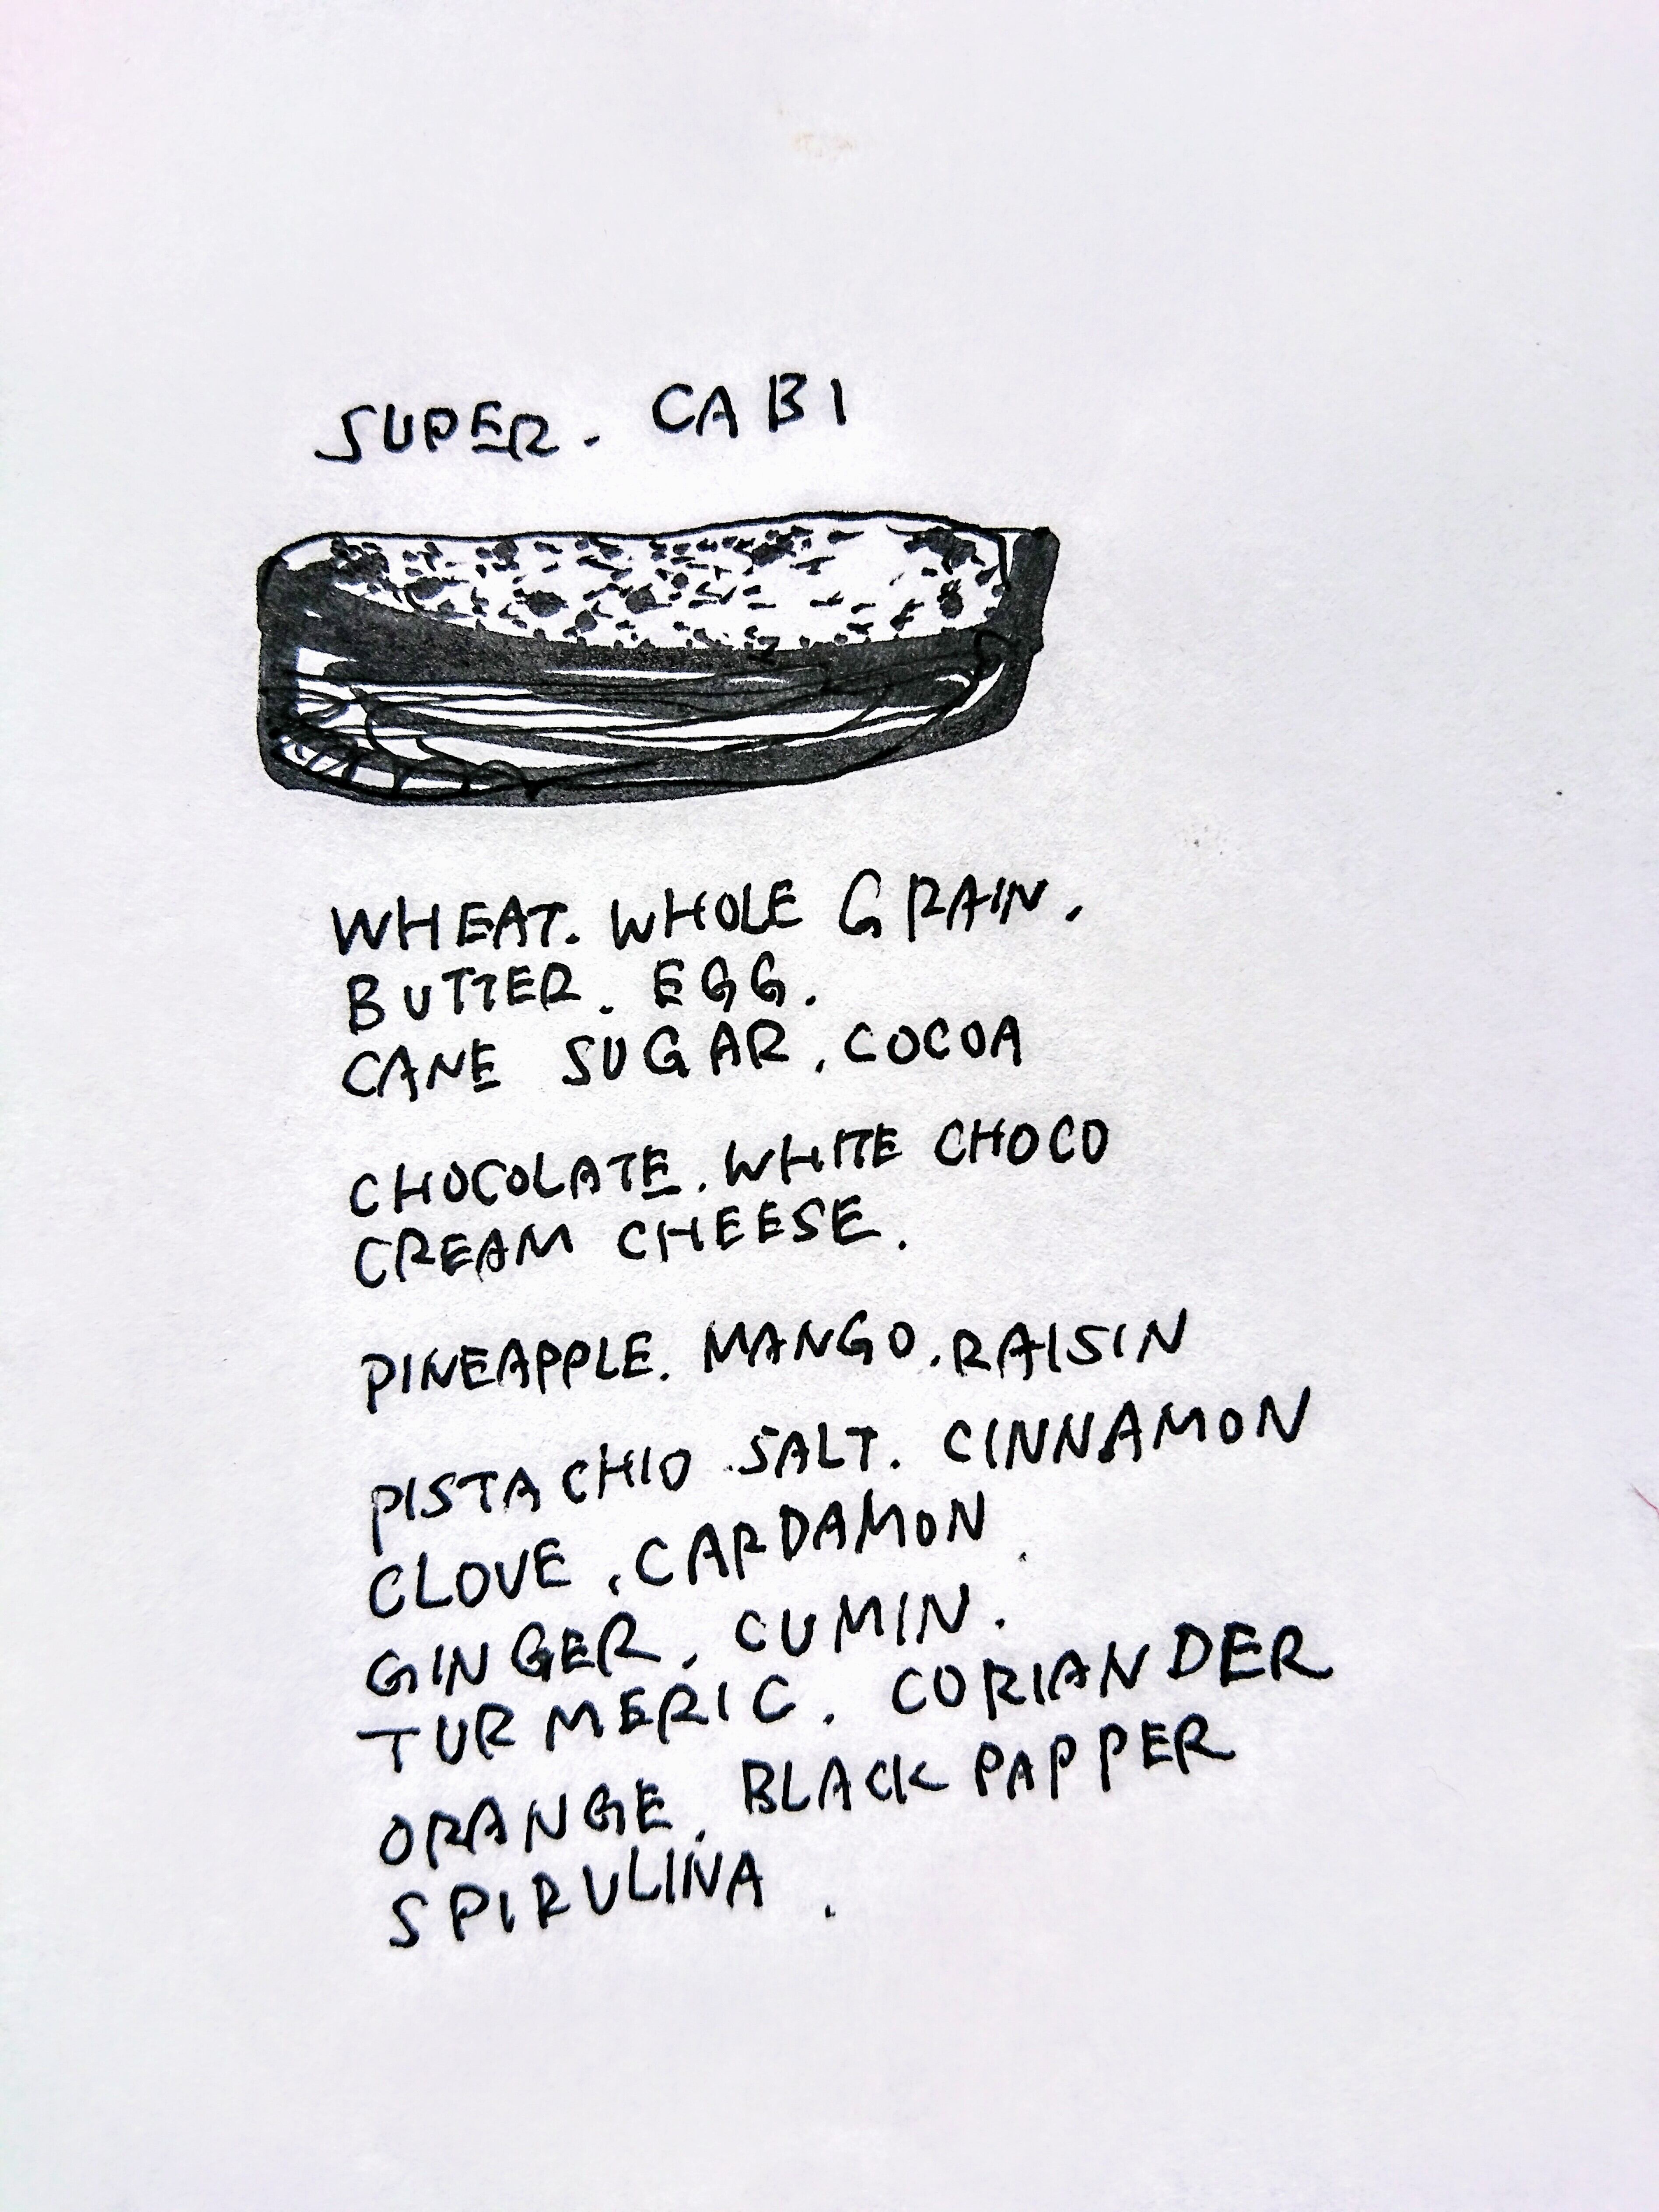 SUPER. CABI
WHEAT. WHOLE GRAIN.
BUTTER. EGG.
CANE SUGAR. COCOA
CHOCOLATE. WHITE CHOCO
CREAM CHEESE.
PINEAPPLE. MANGO. RAISIN
PISTACHIO. SALT. CINNAMON
CLOVE. CARDAMON.
GINGER. CUMIN.
TURMERIC. CORIANDER
ORANGE. BLACK PAPPER
SPIRULINA.